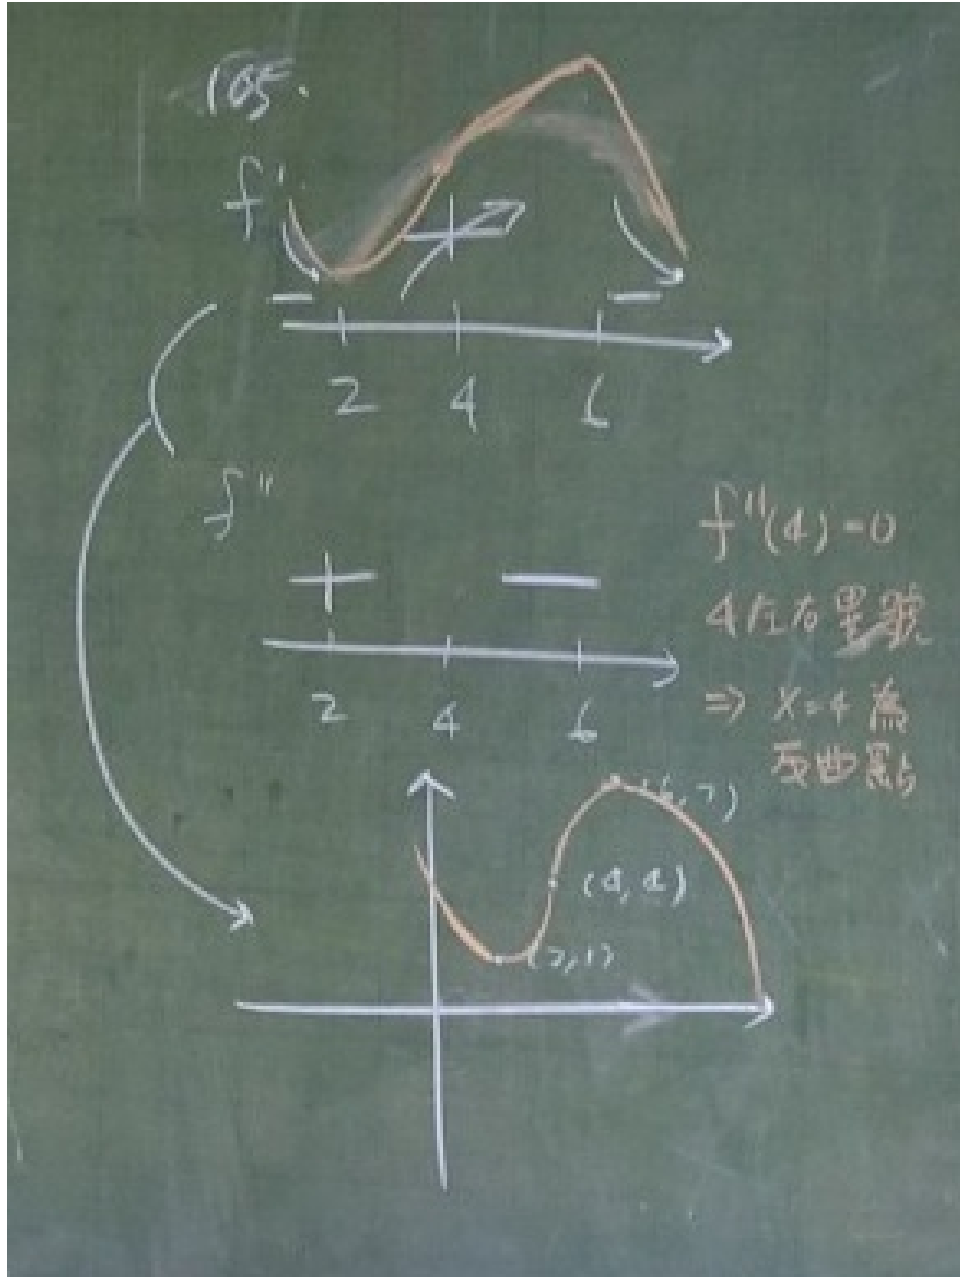 105.
f'
+
− −
2 4 6
f''
+ −
2 4 6
f''(4)=0
4左右異號
⇒ x=4 為
反曲點
(6,7)
(4,4)
(2,1)